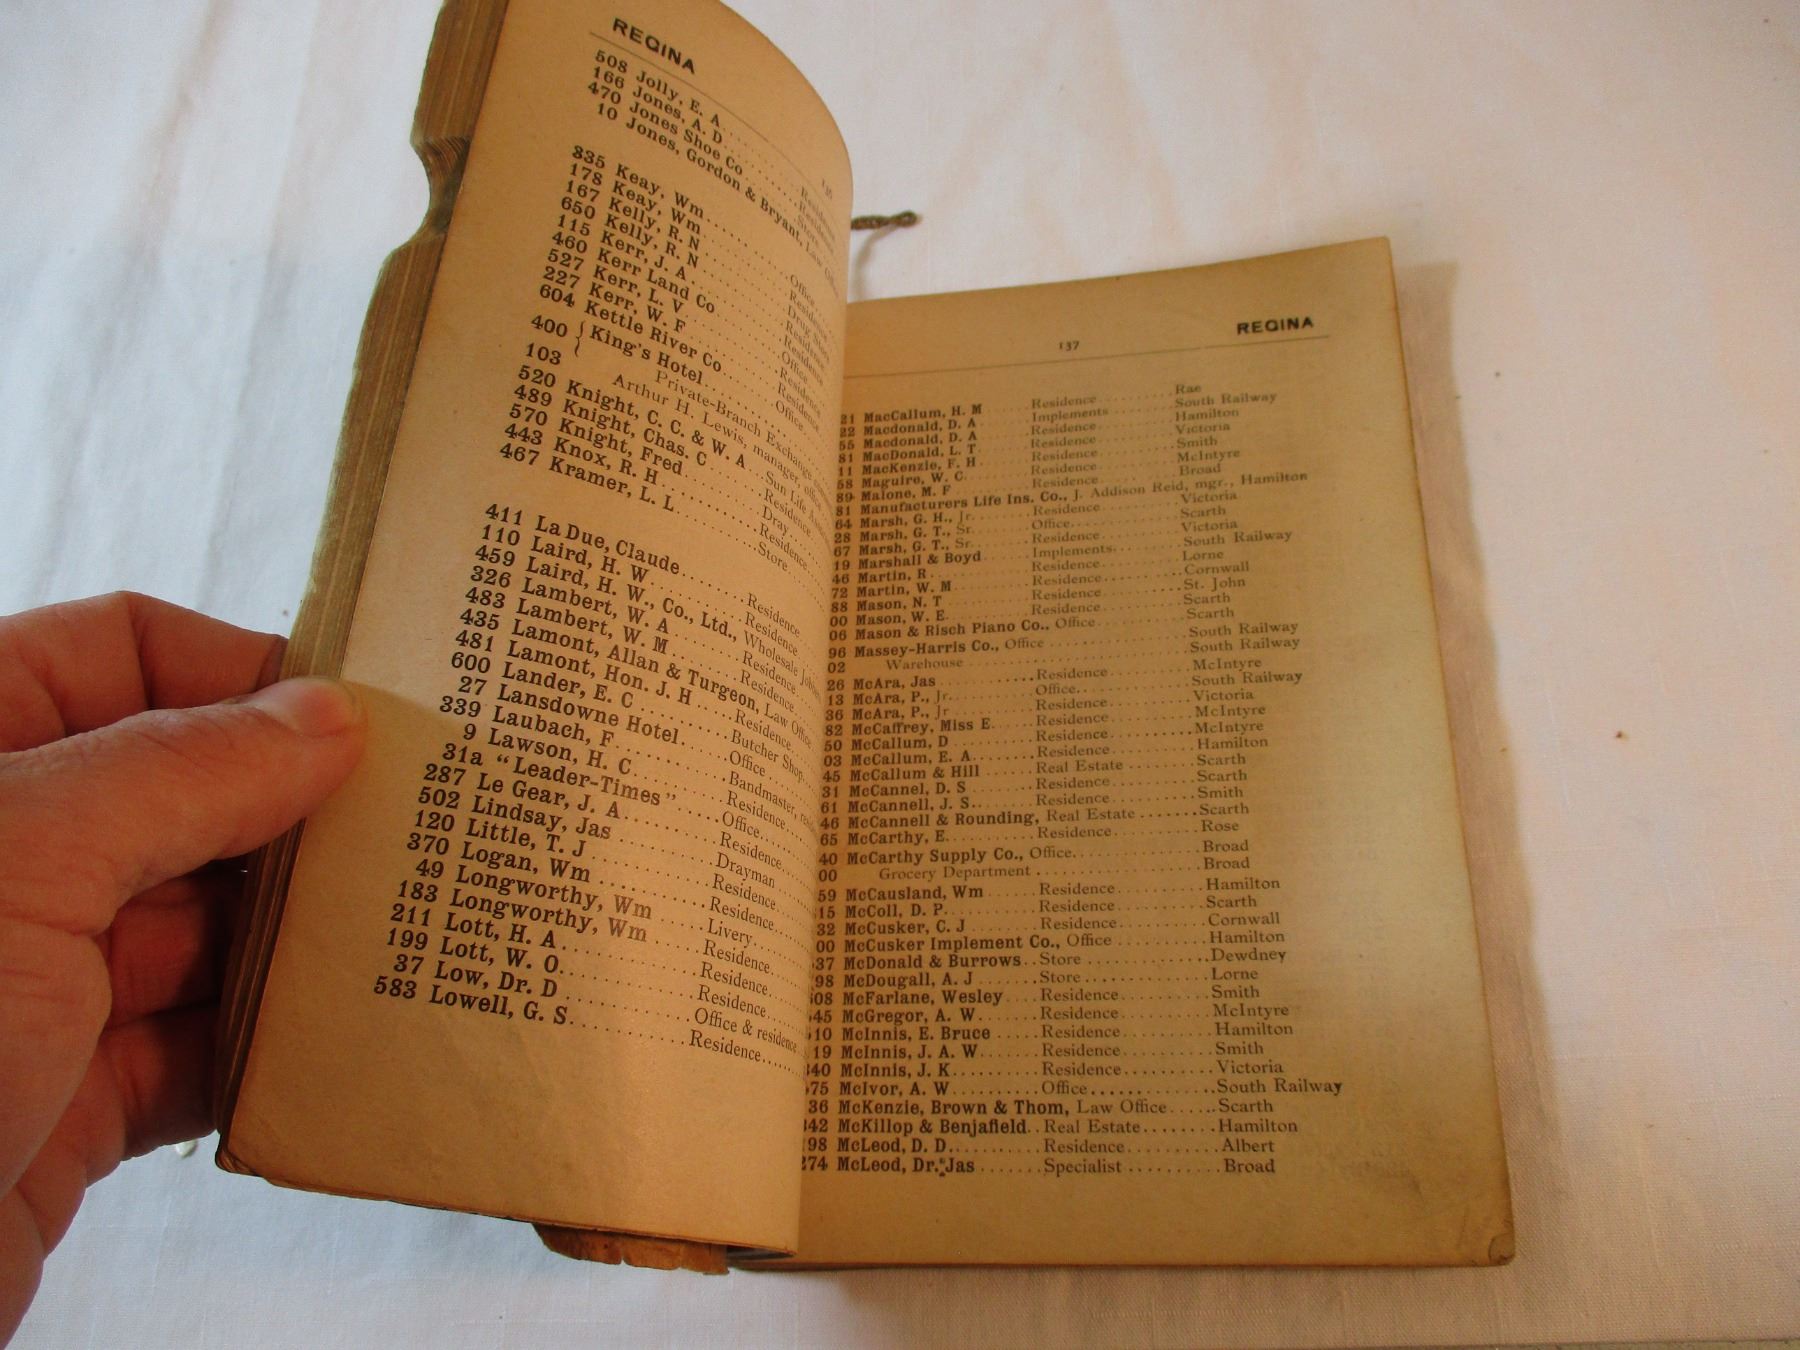 REGINA
508 Jolly, E. A
166 Jones, A. D
470 Jones Shoe Co
10 Jones, Gordon & Bryant, Law
335 Keay, Wm Office
178 Keay, Wm Residence
167 Kelly, R. N
650 Kelly, R. N Residence
115 Kerr, J. A
460 Kerr Land Co Office
527 Kerr, L. V Residence
227 Kerr, W. F Residence
604 Kettle River Co Office
400 King's Hotel
103 Private-Branch Exchange
Arthur H. Lewis, manager, office
520 Knight, C. C. & W. A Sun Life
489 Knight, Chas. C Residence
570 Knight, Fred Dray
443 Knox, R. H Residence
467 Kramer, L. L Store
411 La Due, Claude Residence
110 Laird, H. W Residence
459 Laird, H. W., Co., Ltd., Wholesale
326 Lambert, W. A Residence
483 Lambert, W. M Residence
435 Lamont, Allan & Turgeon, Law Office
481 Lamont, Hon. J. H Residence
600 Lander, E. C Butcher Shop
27 Lansdowne Hotel Office
339 Laubach, F Bandmaster,
9 Lawson, H. C Residence
31a "Leader-Times" Office
287 Le Gear, J. A Residence
502 Lindsay, Jas Drayman
120 Little, T. J Residence
370 Logan, Wm Residence
49 Longworthy, Wm Livery
183 Longworthy, Wm Residence
211 Lott, H. A Residence
199 Lott, W. O Residence
37 Low, Dr. D Office & residence
583 Lowell, G. S Residence
137 REGINA
21 MacCallum, H. M Residence Rae
22 Macdonald, D. A Implements South Railway
55 Macdonald, D. A Residence Hamilton
81 MacDonald, L. T Residence Victoria
11 MacKenzie, F. H Residence Smith
58 Maguire, W. C Residence McIntyre
89 Malone, M. F Residence Broad
81 Manufacturers Life Ins. Co., J. Addison Reid, mgr., Hamilton
64 Marsh, G. H., Jr Residence Victoria
28 Marsh, G. T., Sr Office Scarth
67 Marsh, G. T., Sr Residence Victoria
19 Marshall & Boyd Implements South Railway
46 Martin, R Residence Lorne
72 Martin, W. M Residence Cornwall
88 Mason, N. T Residence St. John
00 Mason, W. E Residence Scarth
06 Mason & Risch Piano Co., Office Scarth
96 Massey-Harris Co., Office South Railway
02 Warehouse South Railway
26 McAra, Jas Residence McIntyre
13 McAra, P., Jr Office South Railway
36 McAra, P., Jr Residence Victoria
82 McCaffrey, Miss E Residence McIntyre
50 McCallum, D Residence McIntyre
03 McCallum, E. A Residence Hamilton
45 McCallum & Hill Real Estate Scarth
31 McCannel, D. S Residence Scarth
61 McCannell, J. S Residence Smith
46 McCannell & Rounding, Real Estate Scarth
65 McCarthy, E Residence Rose
40 McCarthy Supply Co., Office Broad
00 Grocery Department Broad
59 McCausland, Wm Residence Hamilton
15 McColl, D. P Residence Scarth
32 McCusker, C. J Residence Cornwall
00 McCusker Implement Co., Office Hamilton
37 McDonald & Burrows Store Dewdney
98 McDougall, A. J Store Lorne
08 McFarlane, Wesley Residence Smith
45 McGregor, A. W Residence McIntyre
10 McInnis, E. Bruce Residence Hamilton
19 McInnis, J. A. W Residence Smith
40 McInnis, J. K Residence Victoria
75 McIvor, A. W Office South Railway
36 McKenzie, Brown & Thom, Law Office Scarth
42 McKillop & Benjafield Real Estate Hamilton
98 McLeod, D. D Residence Albert
274 McLeod, Dr. Jas Specialist Broad